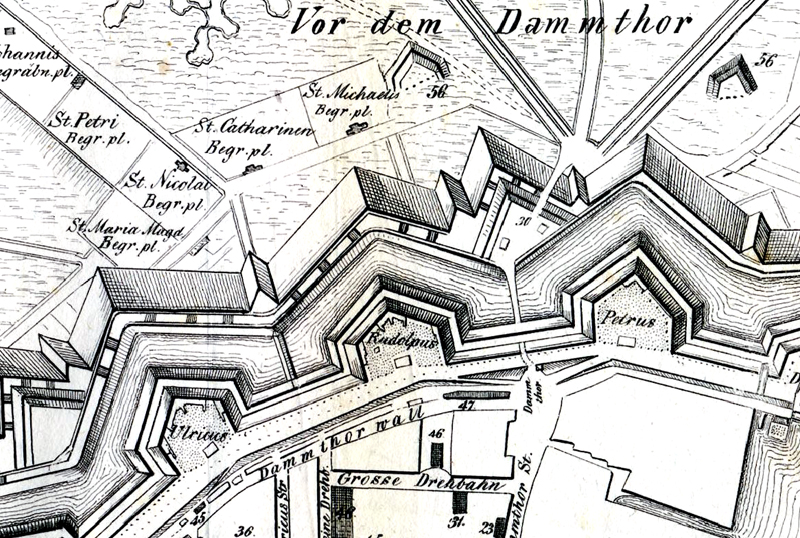 Vor dem Dammthor
56
hannis
egräbn.pl.
St. Michaelis
Begr. pl.
56
St. Petri
Begr. pl.
St. Catharinen
Begr. pl.
St. Nicolai
Begr. pl.
St. Maria Magd
Begr. pl.
30
Rudolpus
Petrus
Damm
thor
Ulricus
Dammthor wall
47
46
Grosse Drehbahn
mthor St.
ricus Str
une Dreht.
45
36.
31.
23